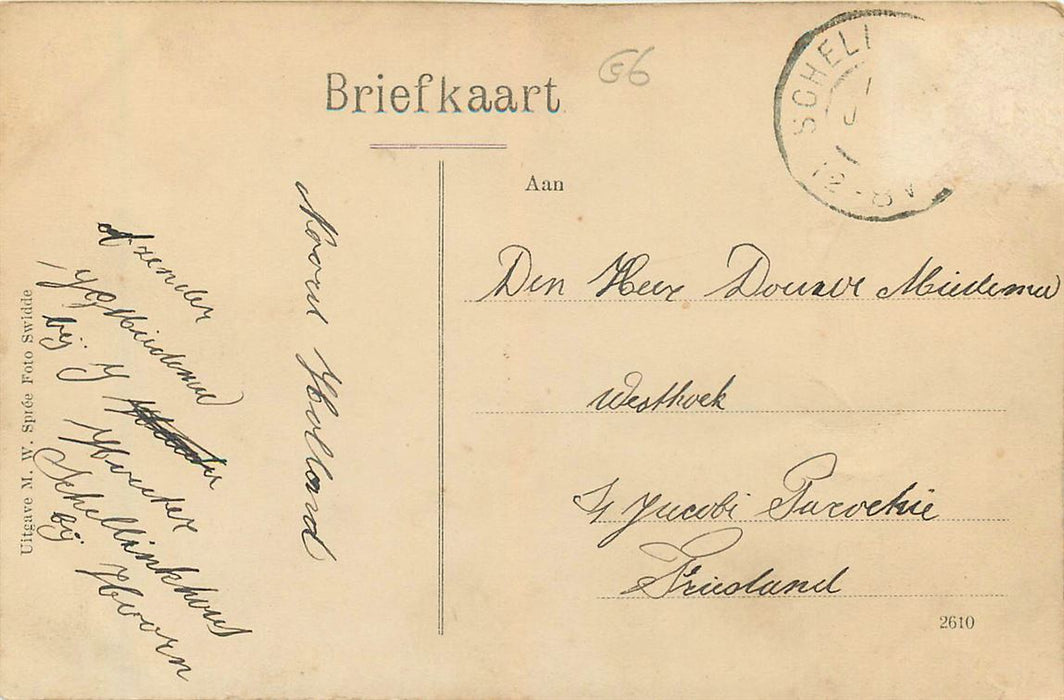 Briefkaart
G6
SCHELI
12-8V
Aan
Den Heer Douwe Miedema
Westhoek
St Jacobi Parochie
Friesland
2610
Noord Holland
Afzender
Miedema
bij Y
Houter
Schellinkhout
bij Hoorn
Uitgave M. W. Sprée Foto Swidde